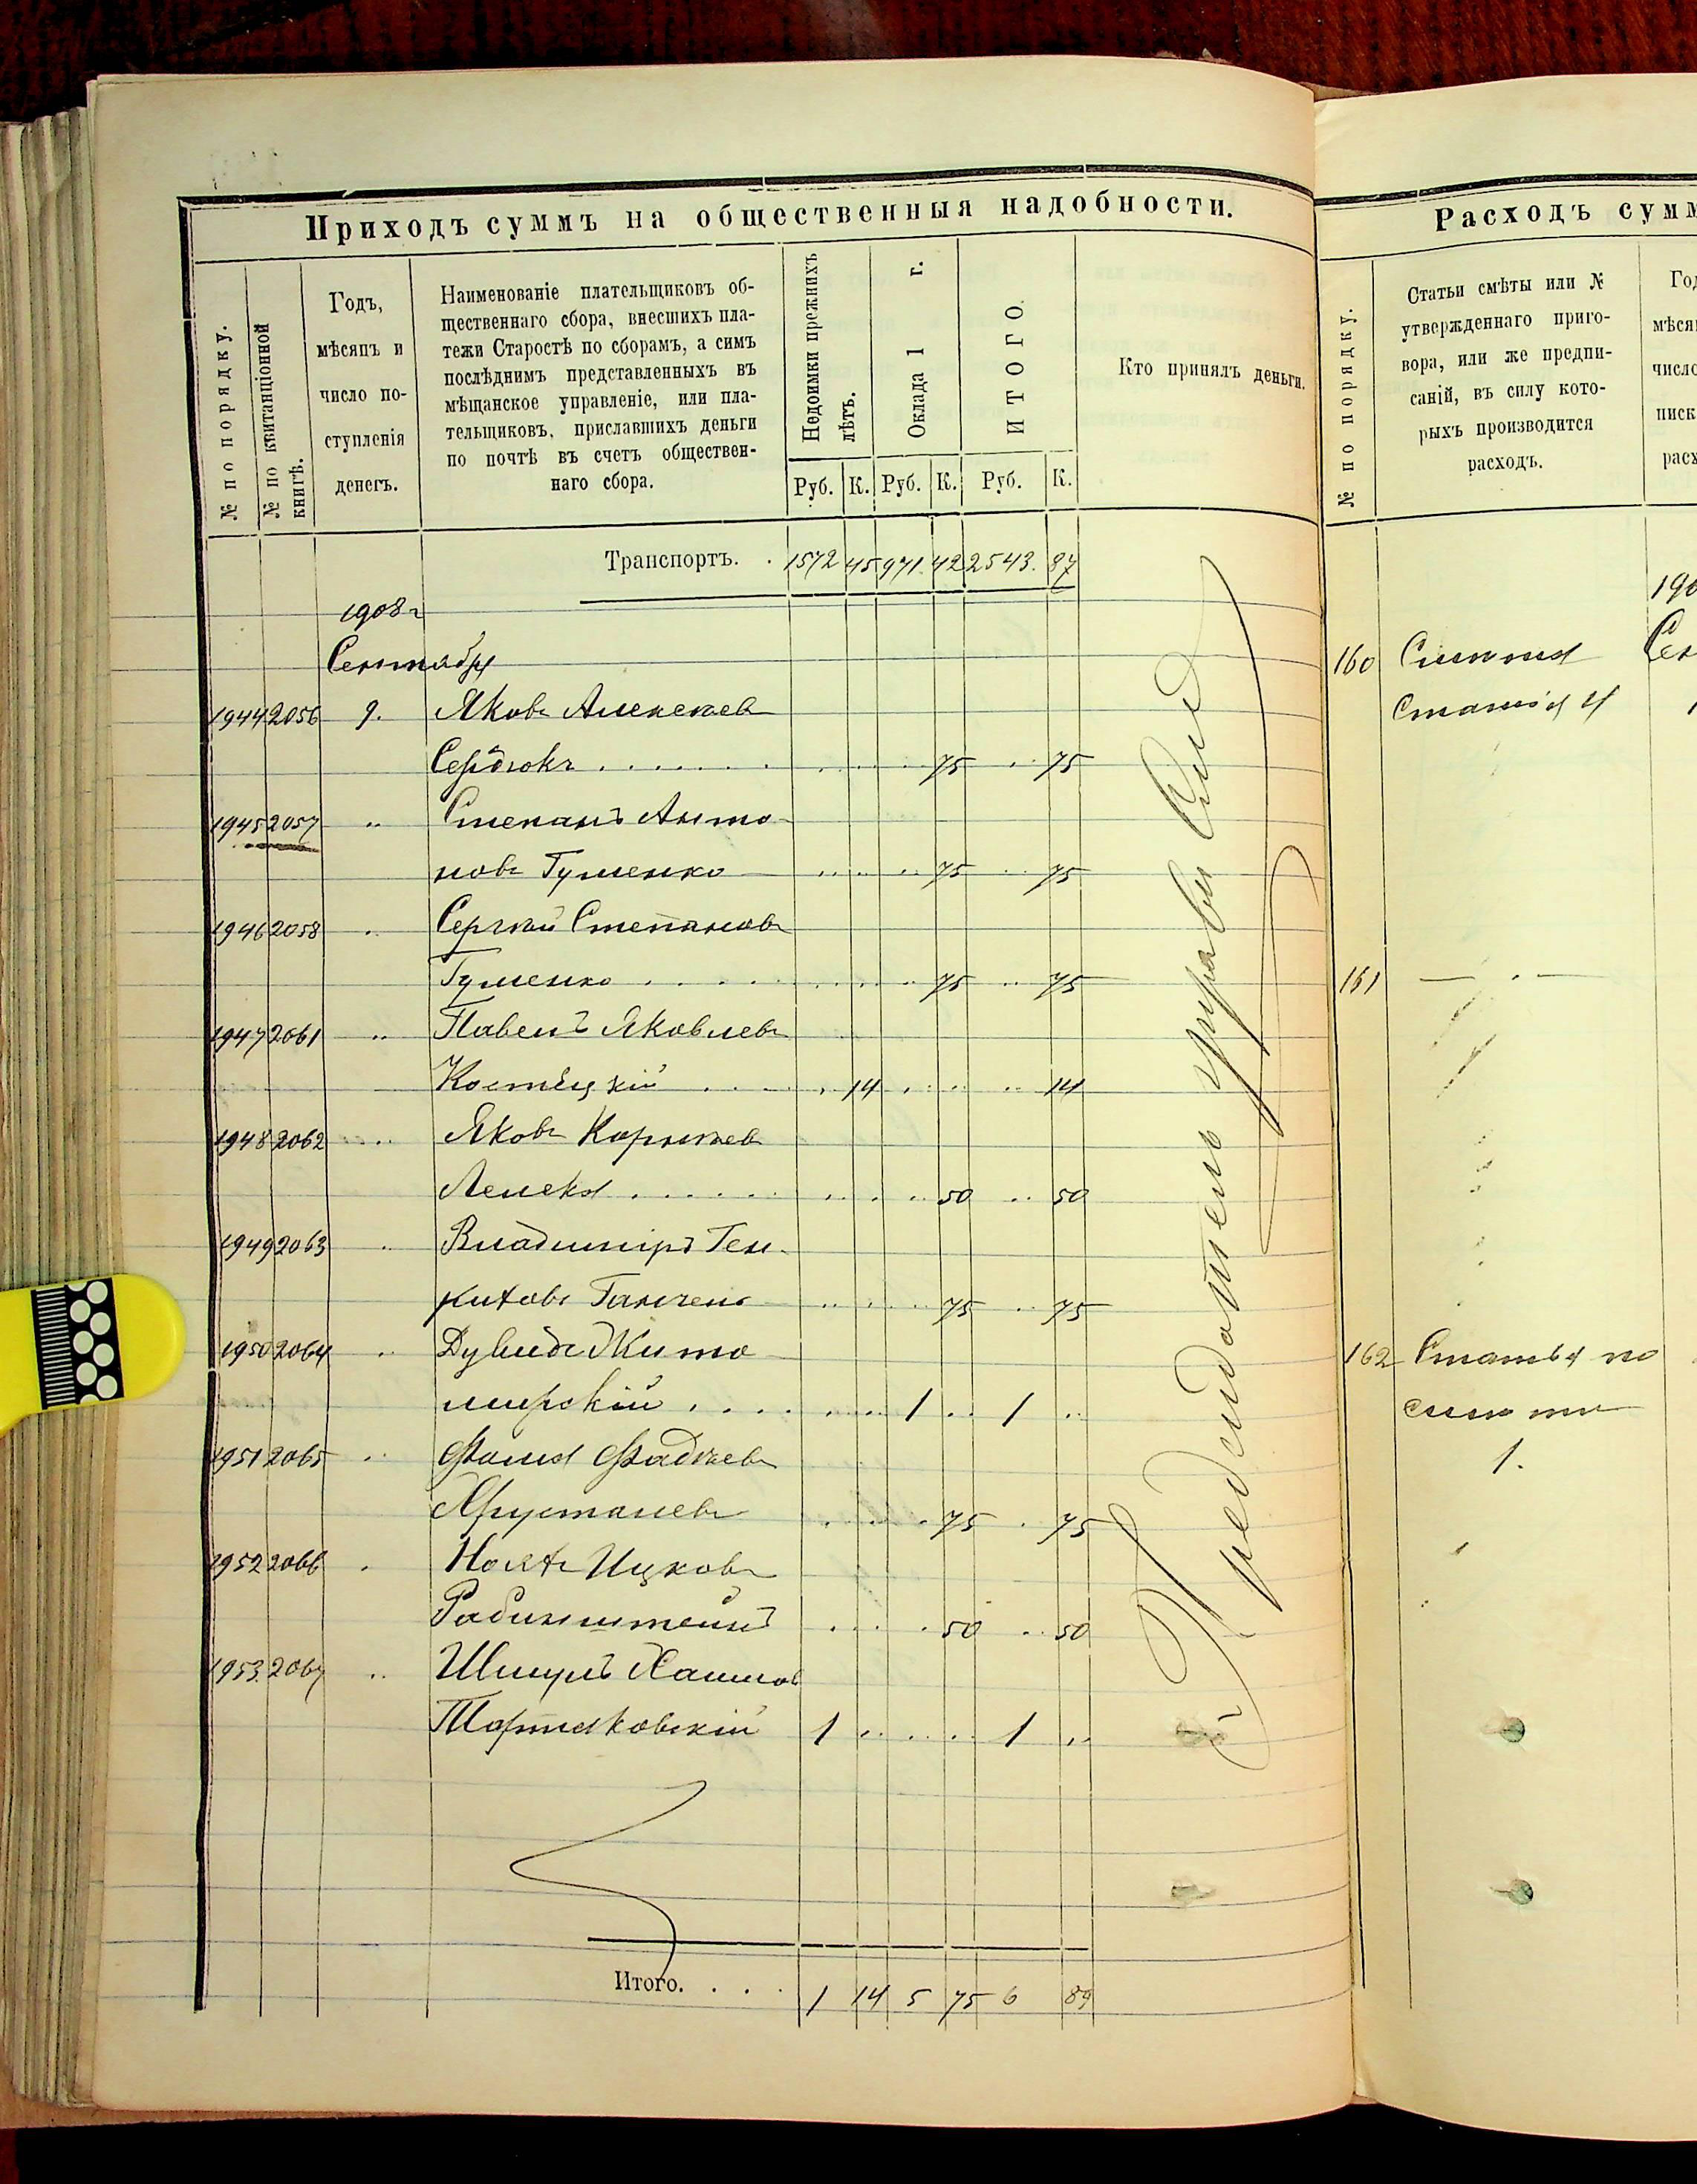 Приходъ суммъ на общественныя надобности.
№ по порядку.
№ по квитанціонной книгѣ.
Годъ,
мѣсяцъ и
число по-
ступленія
денегъ.
Наименованіе плательщиковъ об-
щественнаго сбора, внесшихъ пла-
тежи Старостѣ по сборамъ, а симъ
послѣднимъ представленныхъ въ
мѣщанское управленіе, или пла-
тельщиковъ, приславшихъ деньги
по почтѣ въ счетъ обществен-
наго сбора.
Недоимки прежнихъ
лѣтъ.
Оклада 1 г.
ИТОГО.
Кто принялъ деньги.
Руб. К. Руб. К. Руб. К.
Транспортъ. . 1572 45 971 42 2543 87
1908 г
Сентябрь
1944 2056 9. Яковъ Алексѣев
Сердюкъ . . . . . . 75 .. 75
1945 2057 .. Степанъ Анто-
новъ Гуменко 75 .. 75
1946 2058 .. Сергѣй Степановъ
Гуменко . . . . 75 .. 75
1947 2061 .. Павелъ Яковлевъ
14 .. 14
1948 2062 .. Яковъ
Лелека . . . . . . 50 .. 50
1949 2063 .. Владиміръ
75 .. 75
1950 2064 .. Дувидъ Жито
мирскій . . . . 1 .. 1 ..
1951 2065 .. Фадѣевъ
75 . 75
1952 2066 . Ицковъ
Рабинштейнъ . . . . 50 .. 50
1953 2067 .. Шмулъ Хаимов
Тартаковскій 1 . . . . 1 ..
Итого. . . . 1 14 5 75 6 89
Предсѣдатель управы
Расходъ сумм
№ по порядку.
Статьи смѣты или №
утвержденнаго приго-
вора, или же предпи-
саній, въ силу кото-
рыхъ производится
расходъ.
Год
мѣся
число
писк
расх
190
160 Смѣтная Сен
4
161 — . —
162 Статья по
смѣтѣ
1.